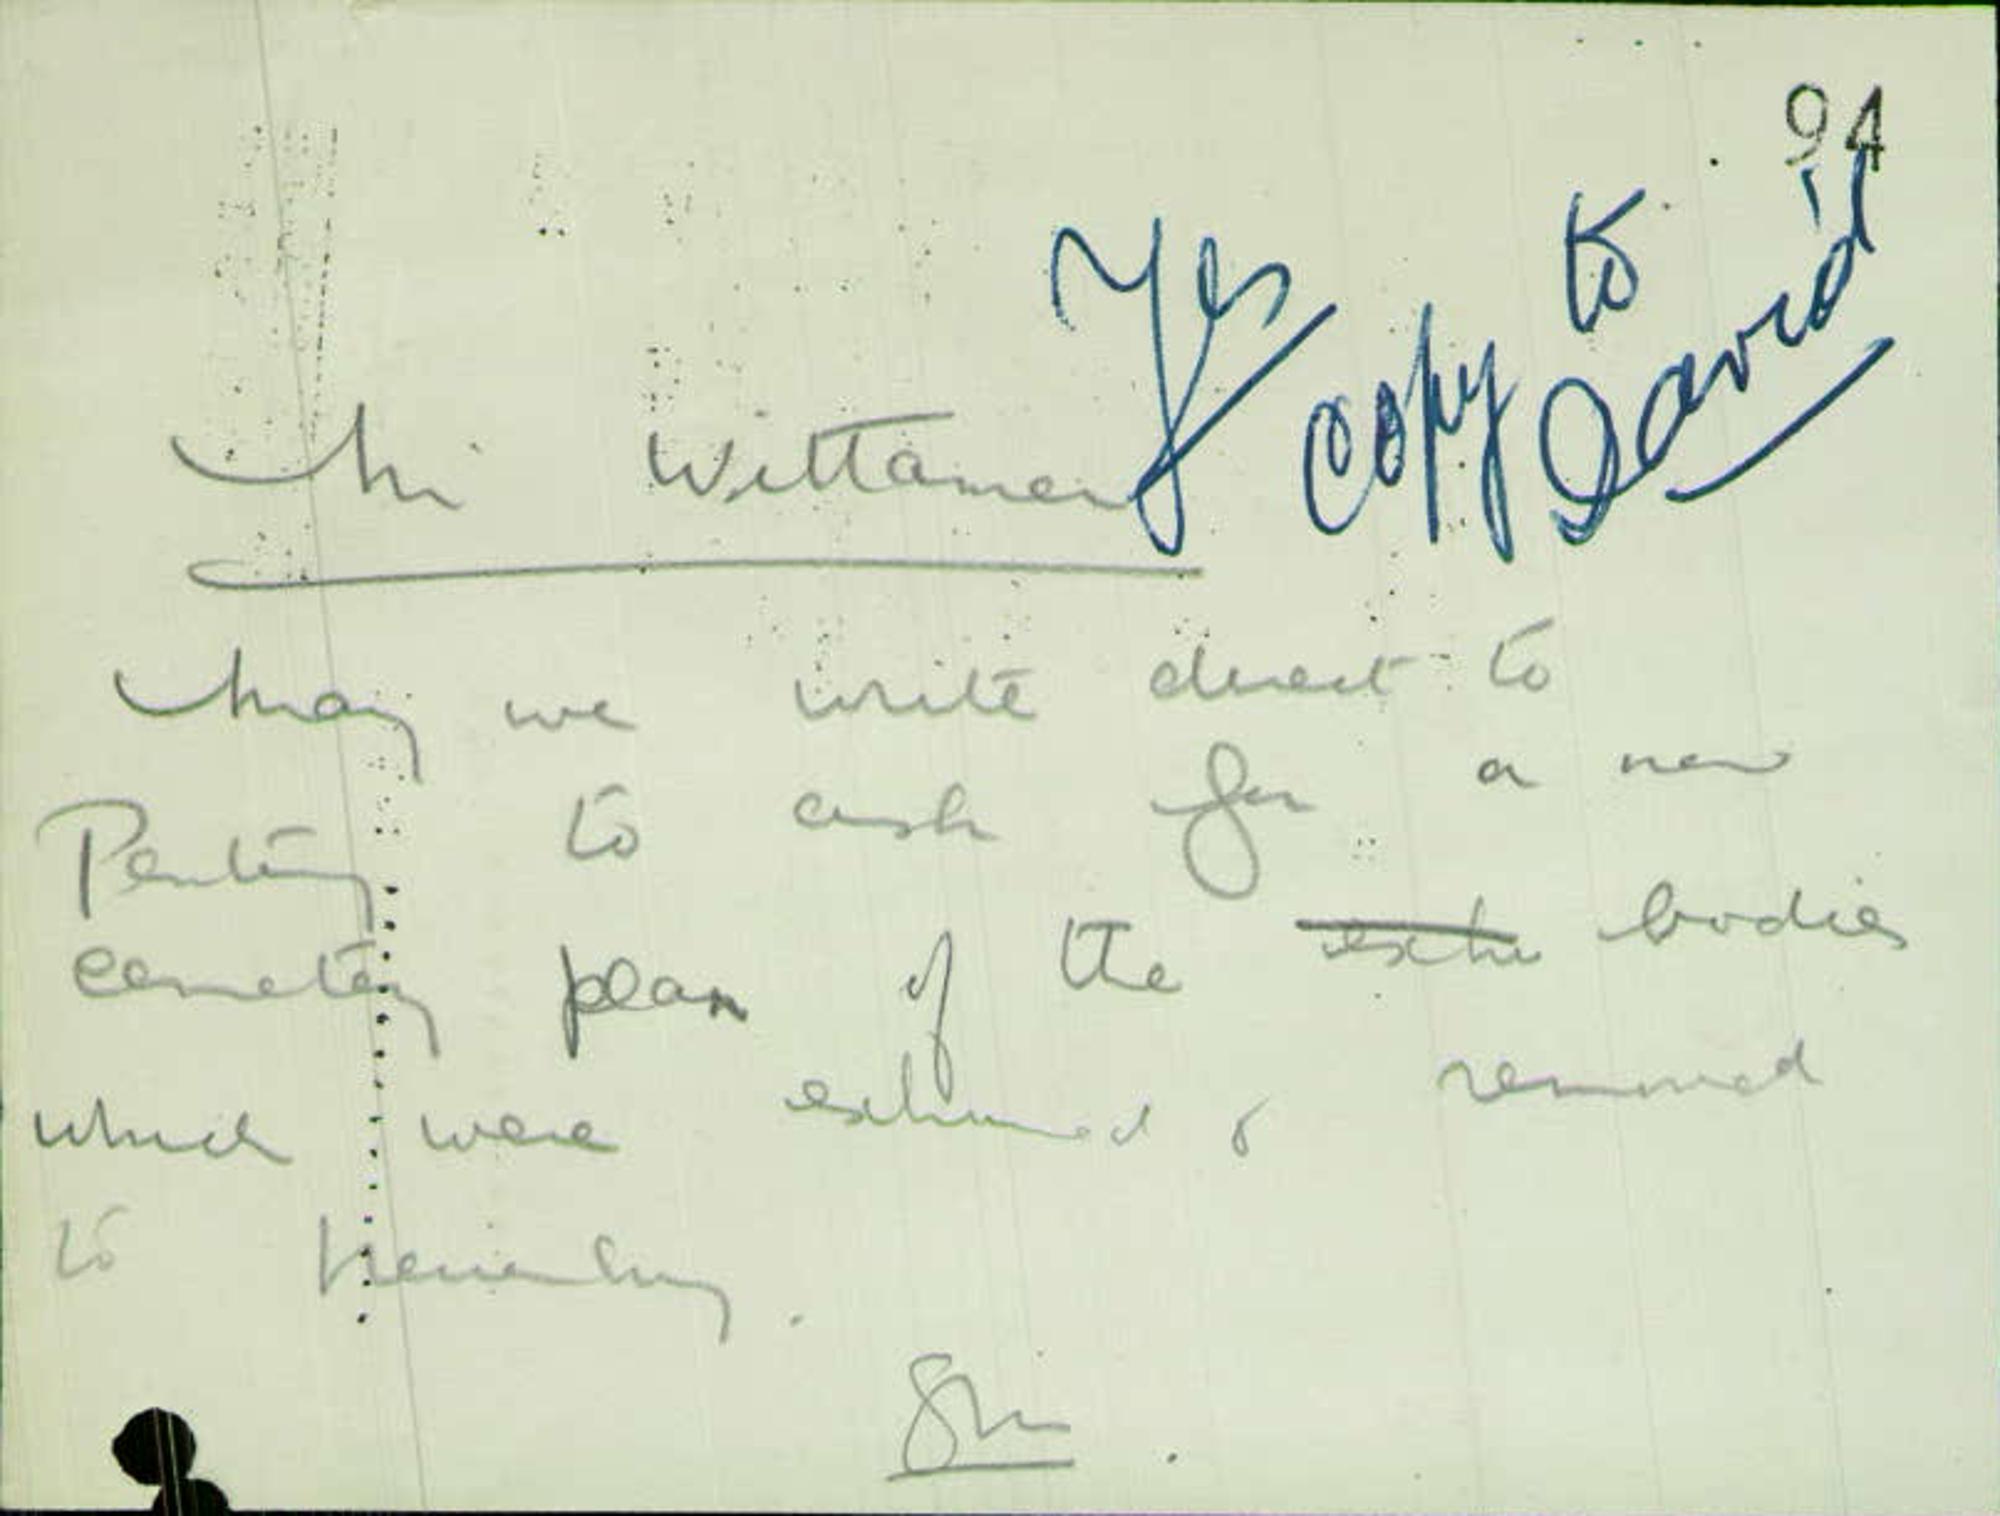 94
Yes
copy to
David
Mr Wittamer
May we write direct to
Penting to ask for a new
cemetery plan of the exhu bodies
which were exhumed & removed
to